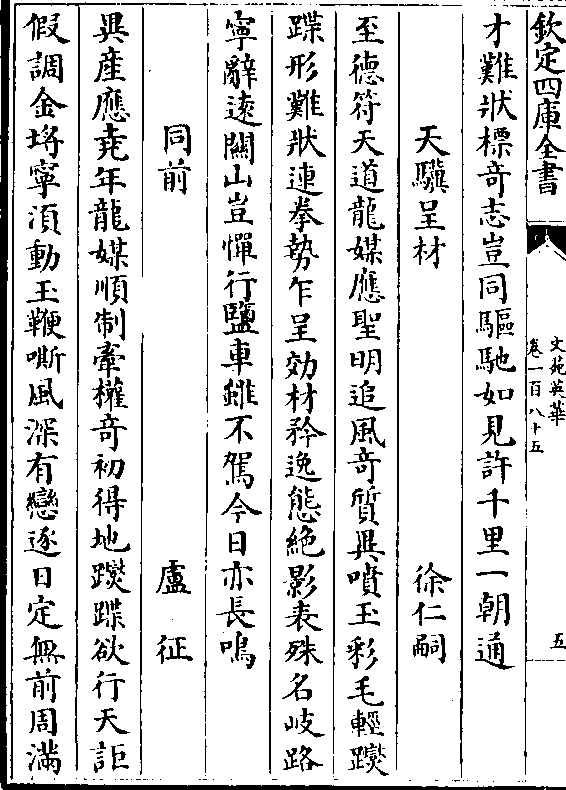 欽定四庫全書
文苑英華
卷一百八十五
五
才難狀標奇志豈同驅馳如見許千里一朝通
天驥呈材
徐仁嗣
至德符天道龍媒應聖明追風奇質異噴玉彩毛輕躞
蹀形難狀連拳勢乍呈効材矜逸態絶影表殊名岐路
寧辭逺關山豈憚行鹽車雖不駕今日亦長鳴
同前
盧征
異産應堯年龍媒順制牽權奇初得地躞蹀欲行天詎
假調金埒寧湏動玉鞭嘶風深有戀逐日定無前周滿